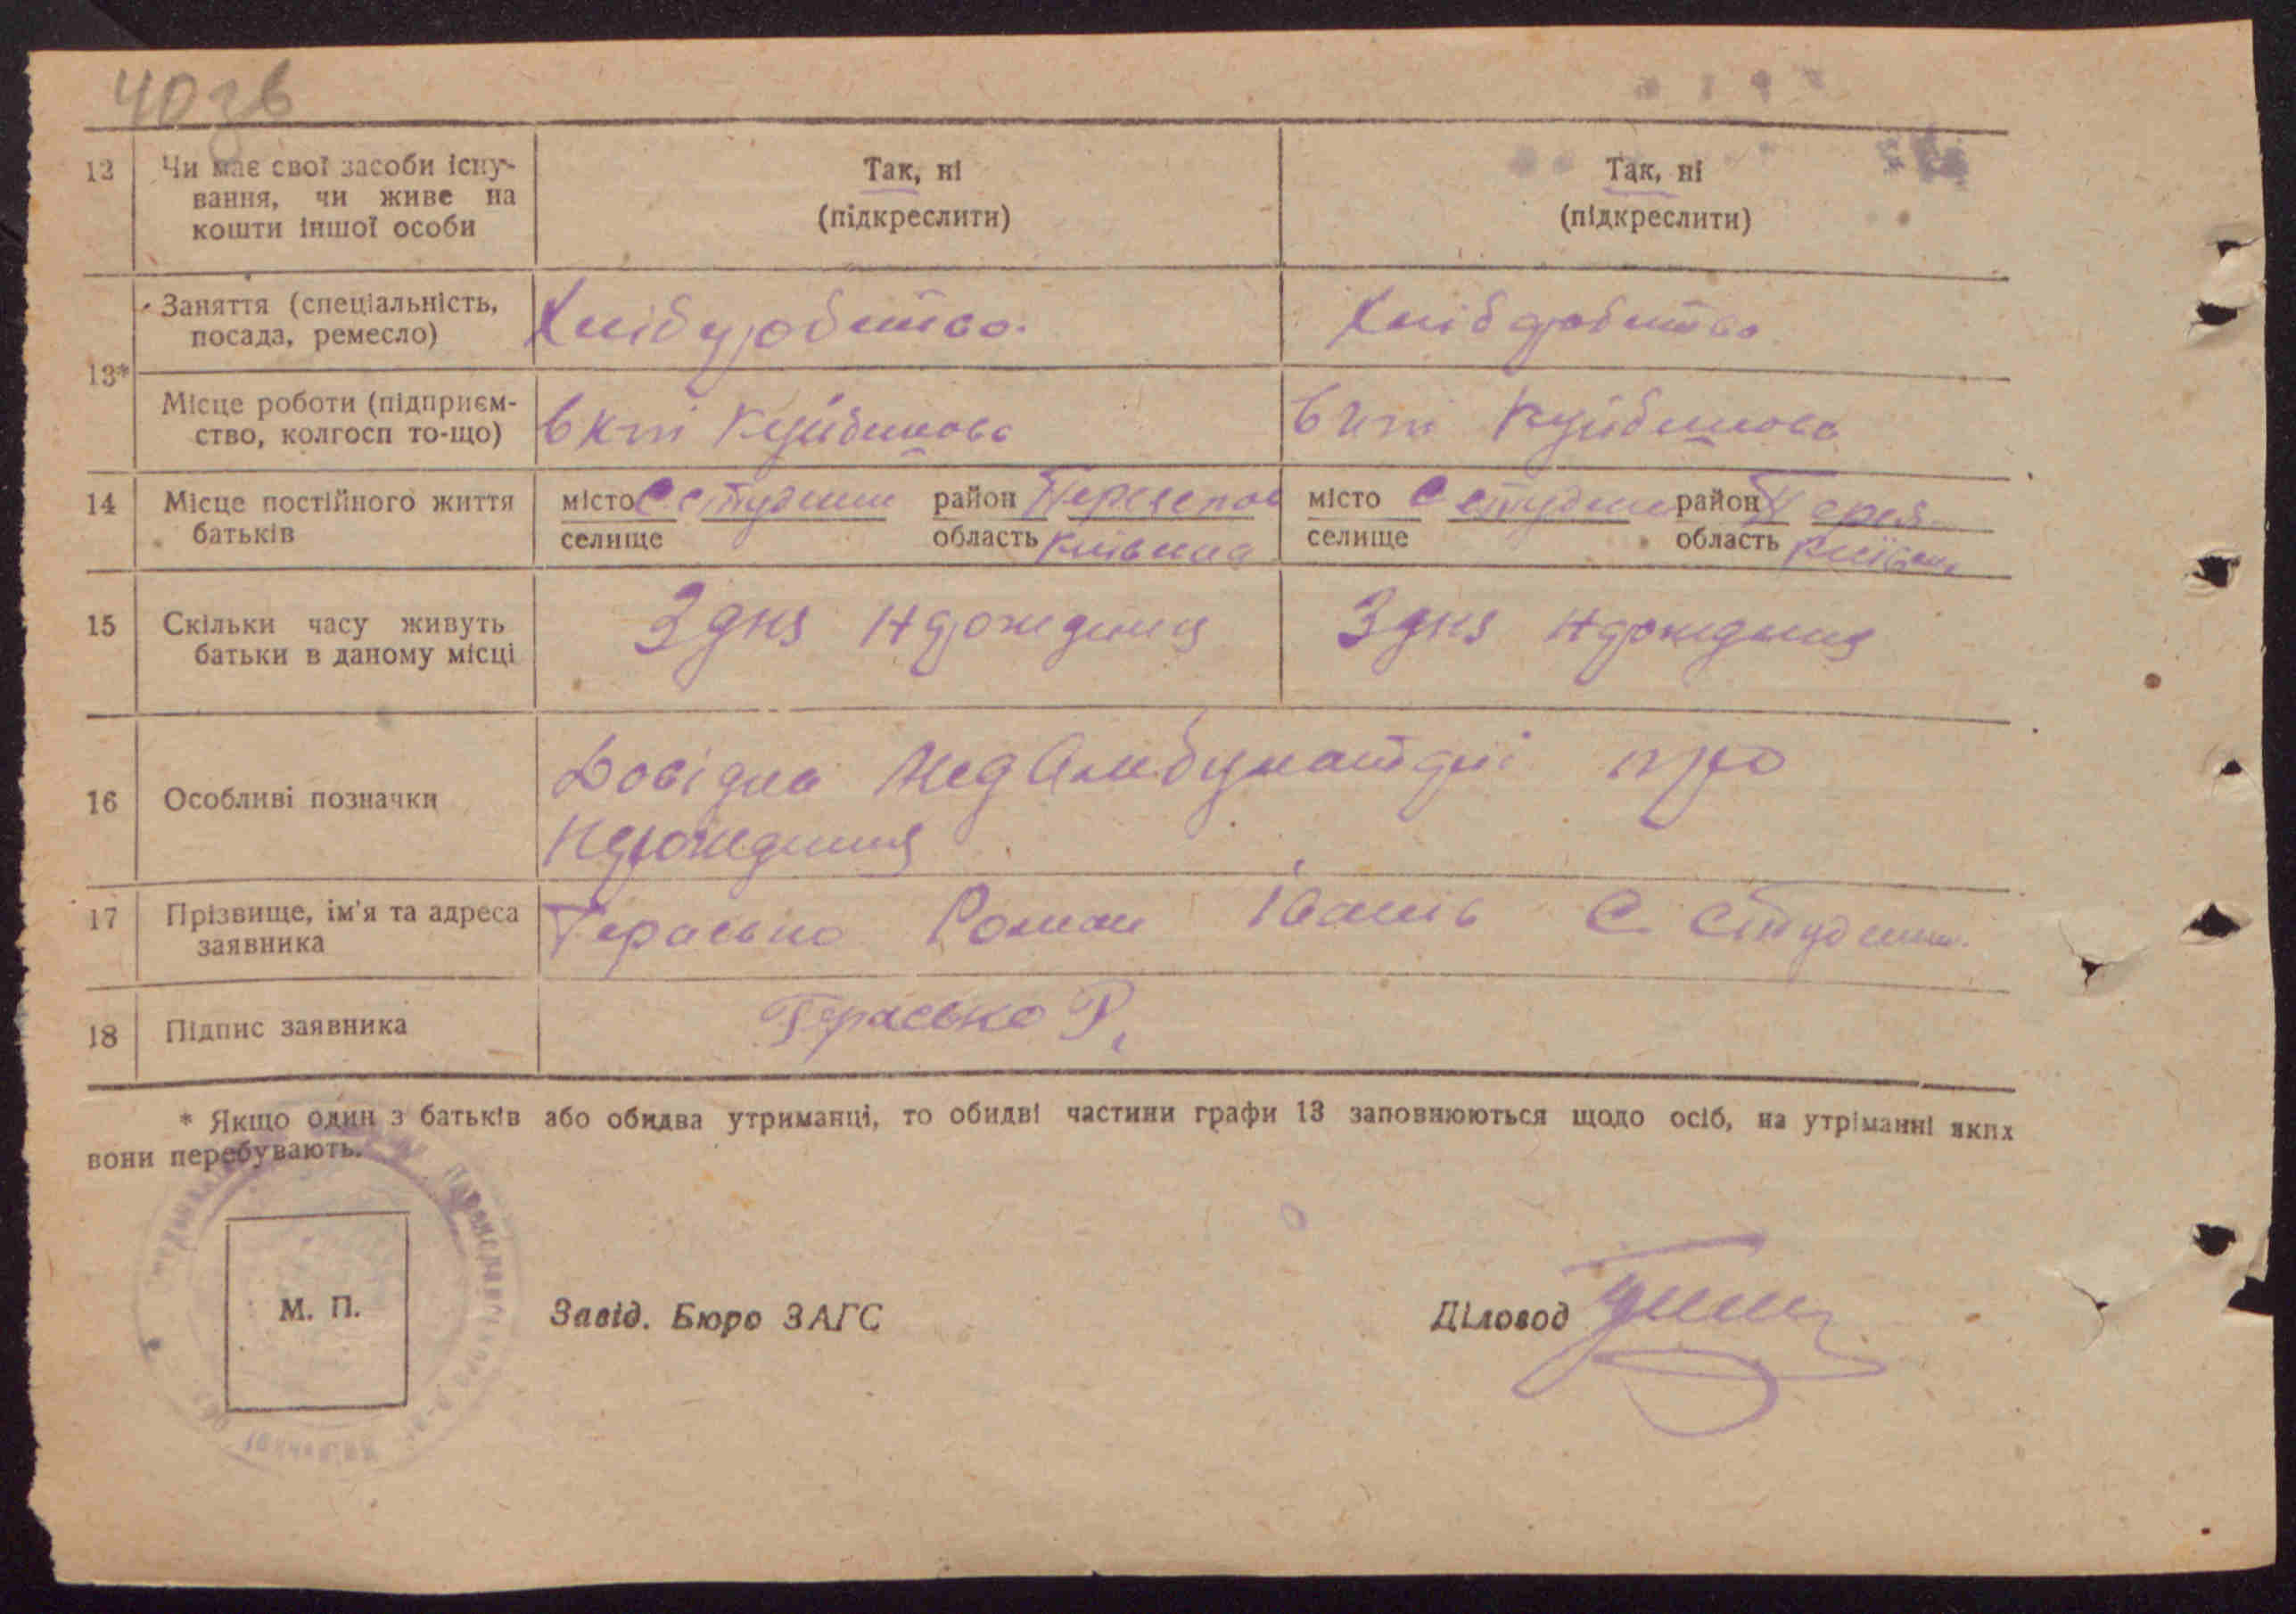 40зв
12 Чи має свої засоби існу-
вання, чи живе на
кошти іншої особи
Так, ні
(підкреслити)
Так, ні
(підкреслити)
13*
Заняття (спеціальність,
посада, ремесло)
Хлібуробство.
Хлібдробство
Місце роботи (підприєм-
ство, колгосп то-що)
в кгті Куйбишова
в кгті Куйбишова
14 Місце постійного життя
батьків
місто С Студники район
селище область Київська
місто С район Перея
селище область Київськ
15 Скільки часу живуть
батьки в даному місці
З дня ндрождення
З дня ндрождення
16 Особливі позначки
Довідка про
Ндрождення
17 Прізвище, ім'я та адреса
заявника
Герасько Роман Іванів С.
18 Підпис заявника
Герасько Р.
* Якщо один з батьків або обидва утриманці, то обидві частини графи 13 заповнюються щодо осіб, на утріманні яких
вони перебувають.
М. П.
Завід. Бюро ЗАГС
Діловод